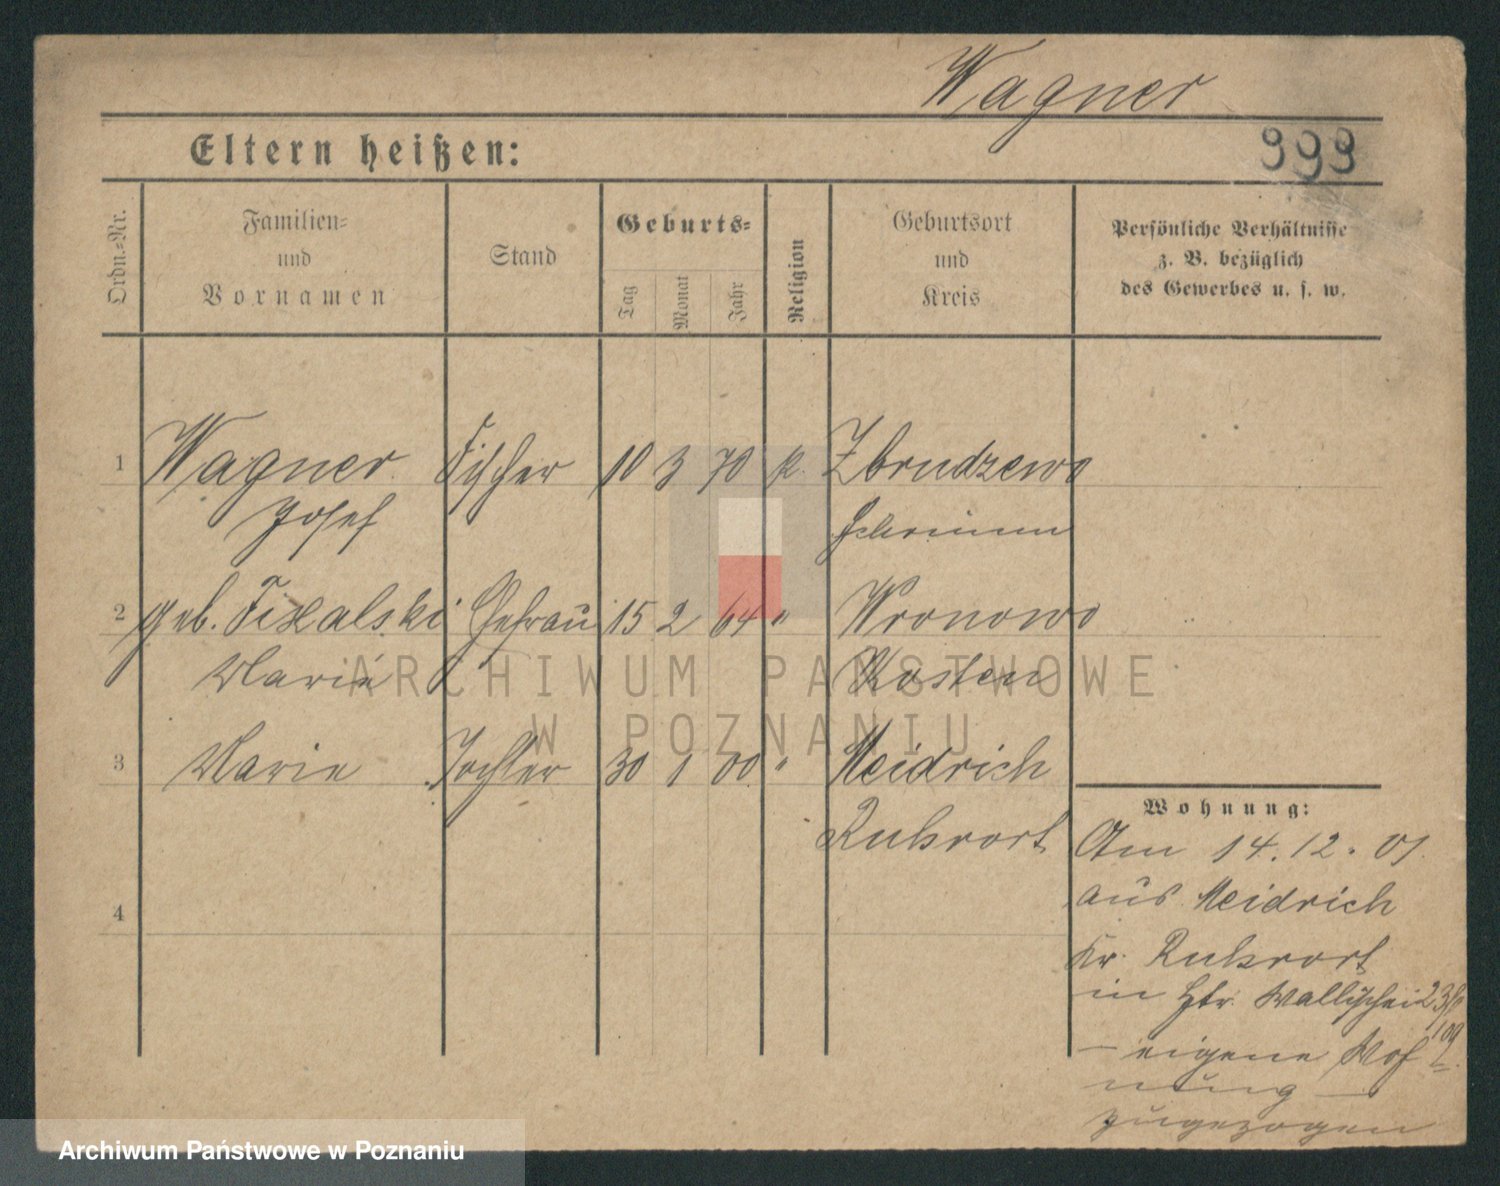 Wagner
Eltern heißen:
999
Ordn.=Nr.
Familien=
und
Vornamen
Stand
Geburts=
Tag
Monat
Jahr
Religion
Geburtsort
und
Kreis
Persönliche Verhältnisse
z. B. bezüglich
des Gewerbes u. s. w.
1 Wagner Fischer 10 3 70 k. Zbrudzewo
Josef Schrimm
2 geb. Ehefrau 15 2 64 " Wronowo
Marie Kosten
3 Marie Tochter 30 1 00 " Meidrich
Ruhrort
4
Wohnung:
Am 14.12.01.
aus Meidrich
Kr. Ruhrort
in Wallischei
– eigene Woh
nung –
zugezogen
ARCHIWUM PAŃSTWOWE
W POZNANIU
Archiwum Państwowe w Poznaniu